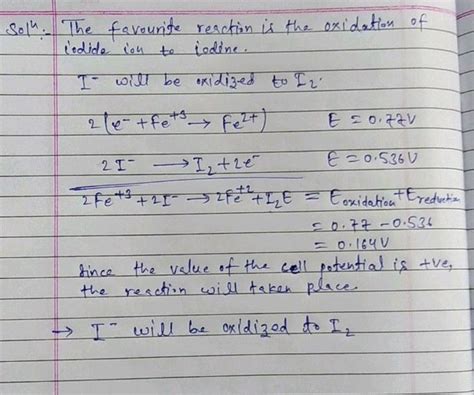 Solⁿ:- The favourite reaction is the oxidation of
iodide ion to iodine.
I⁻ will be oxidized to I₂.
2(e⁻ + Fe⁺³ → Fe²⁺) E = 0.77V
2I⁻ → I₂ + 2e⁻ E = 0.536V
2Fe⁺³ + 2I⁻ → 2Fe⁺² + I₂ E = E oxidation + E reduction
= 0.77 - 0.536
= 0.164V
Since the value of the cell potential is +ve,
the reaction will taken place.
→ I⁻ will be oxidized to I₂